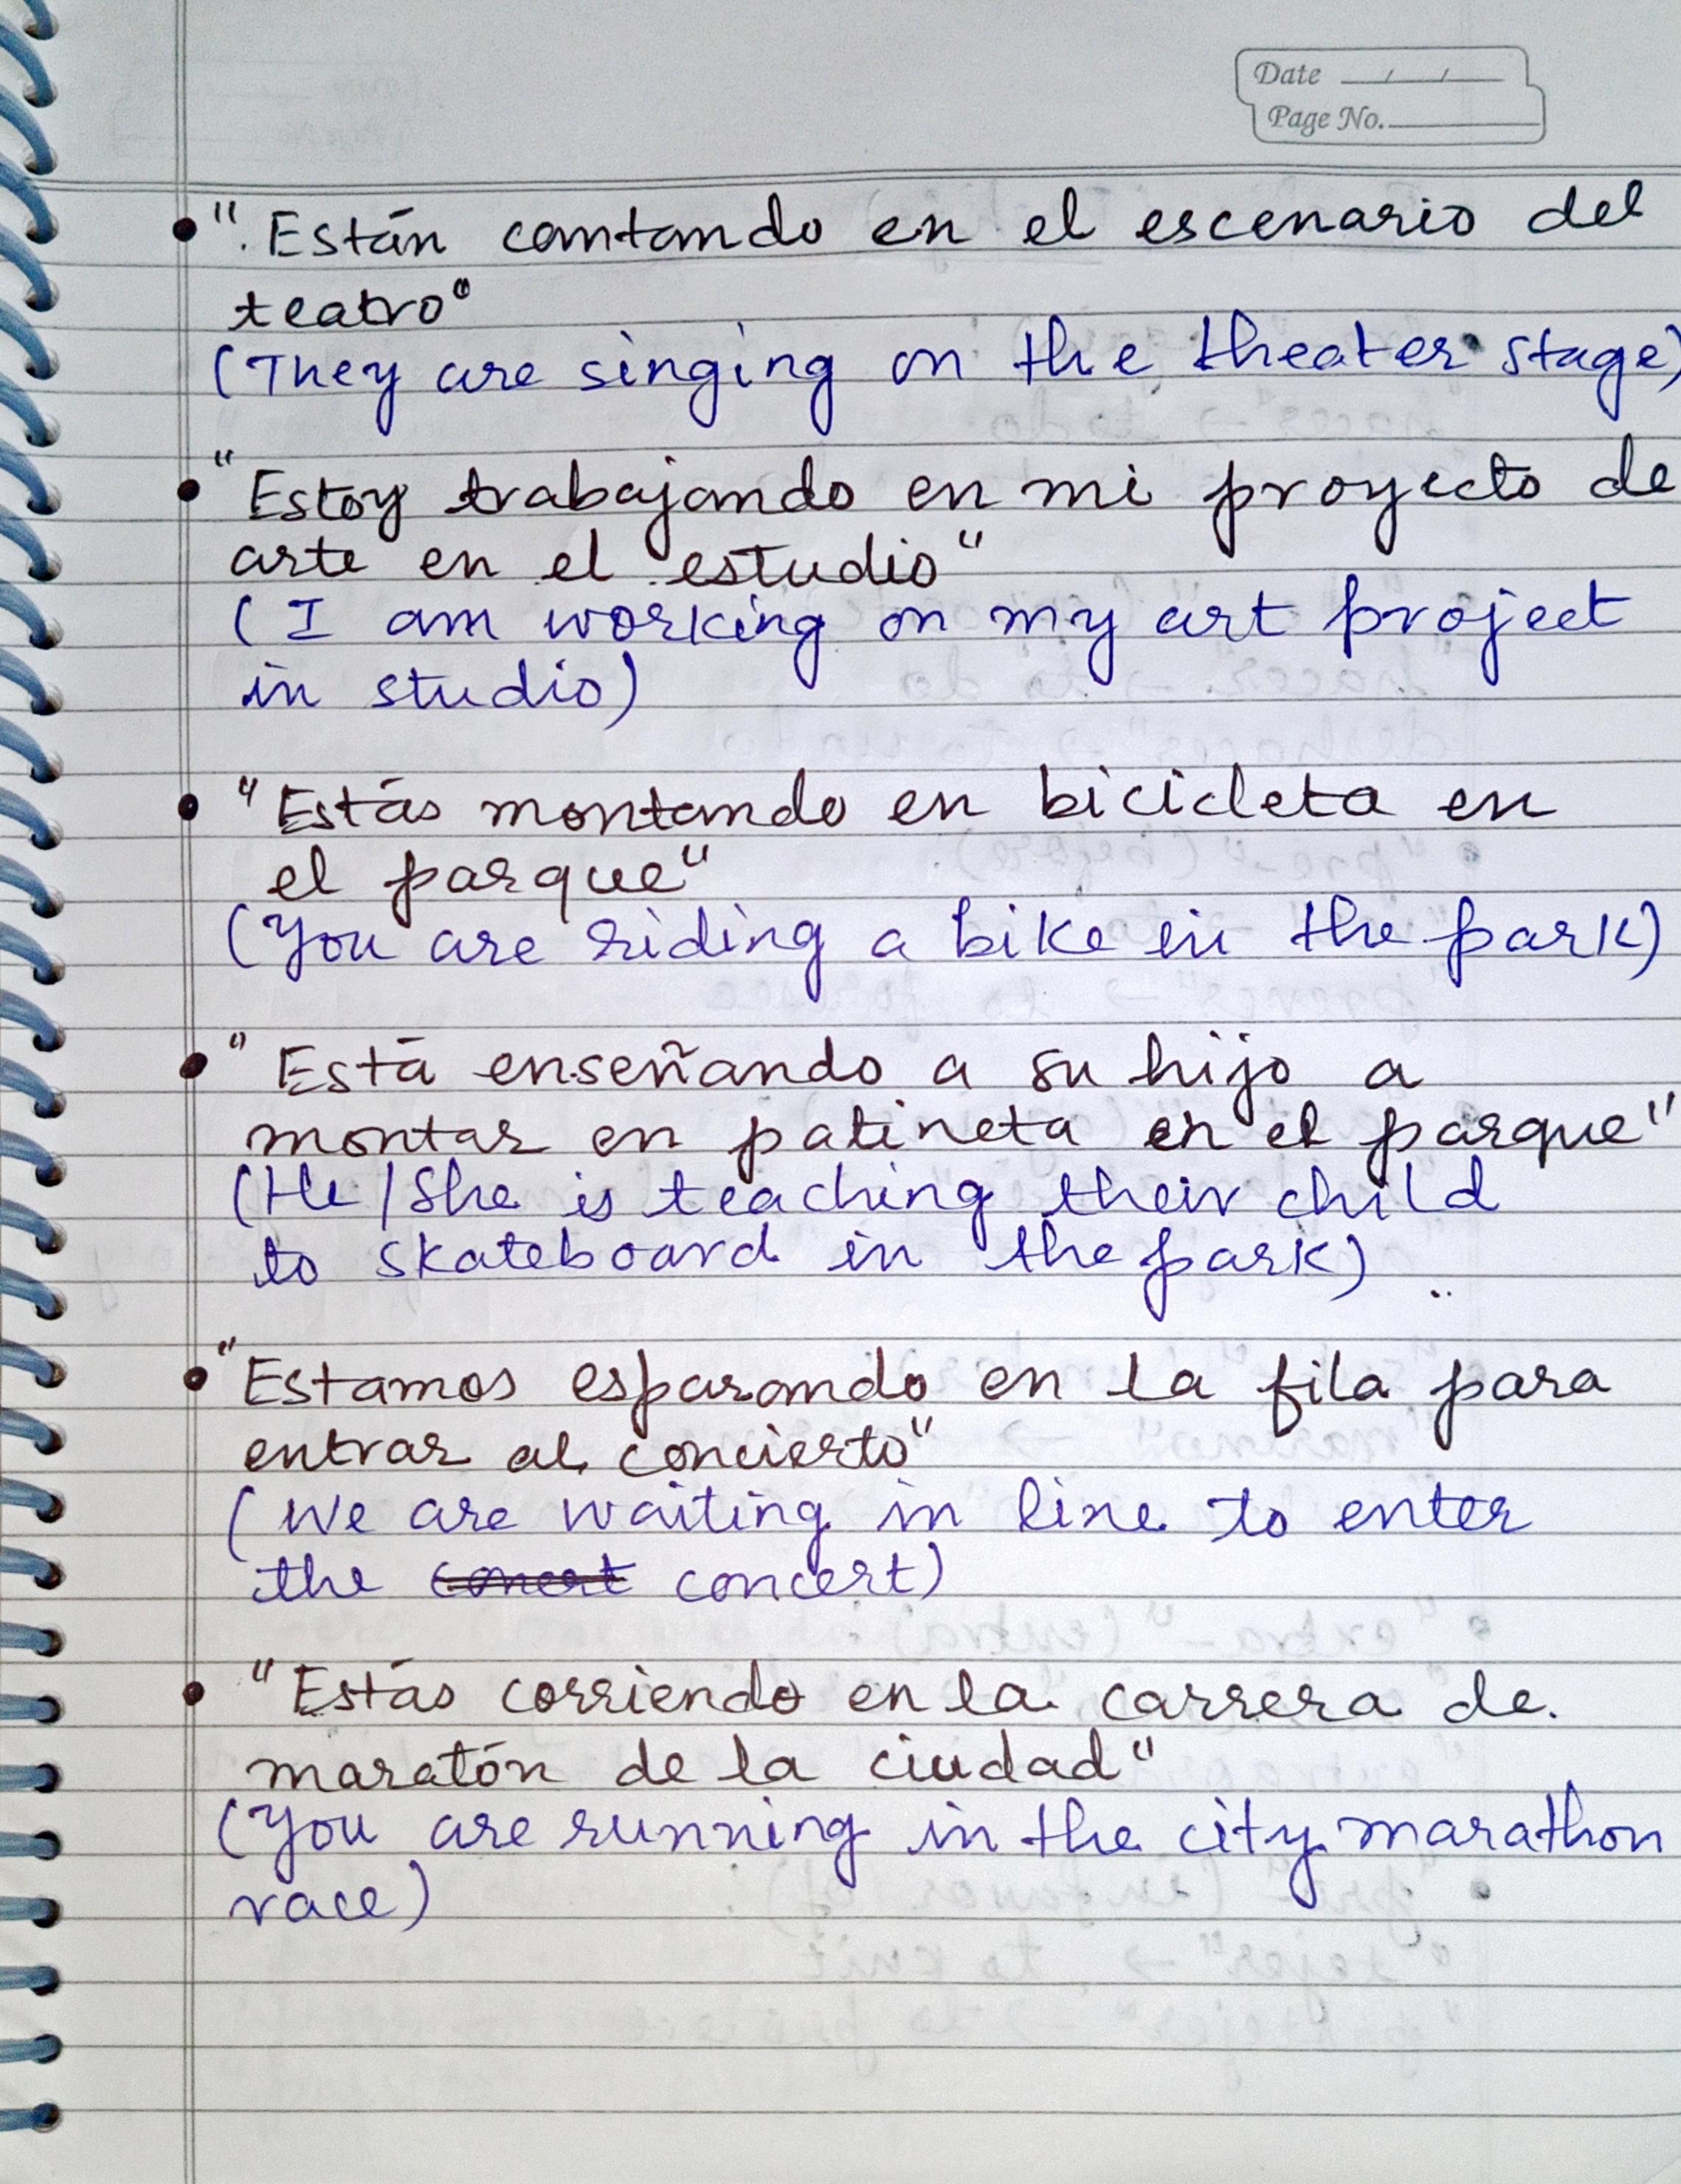 Date __/__/__
Page No.______
• "Están cantando en el escenario del
teatro"
(They are singing on the theater stage)
• "Estoy trabajando en mi proyecto de
arte en el estudio"
(I am working on my art project
in studio)
• "Estás montando en bicicleta en
el parque"
(You are riding a bike in the park)
• "Está enseñando a su hijo a
montar en patineta en el parque"
(He/She is teaching their child
to skateboard in the park)
• "Estamos esparando en la fila para
entrar al concierto"
(We are waiting in line to enter
the concert)
• "Estás corriendo en la carrera de
maratón de la ciudad"
(You are running in the city marathon
race)